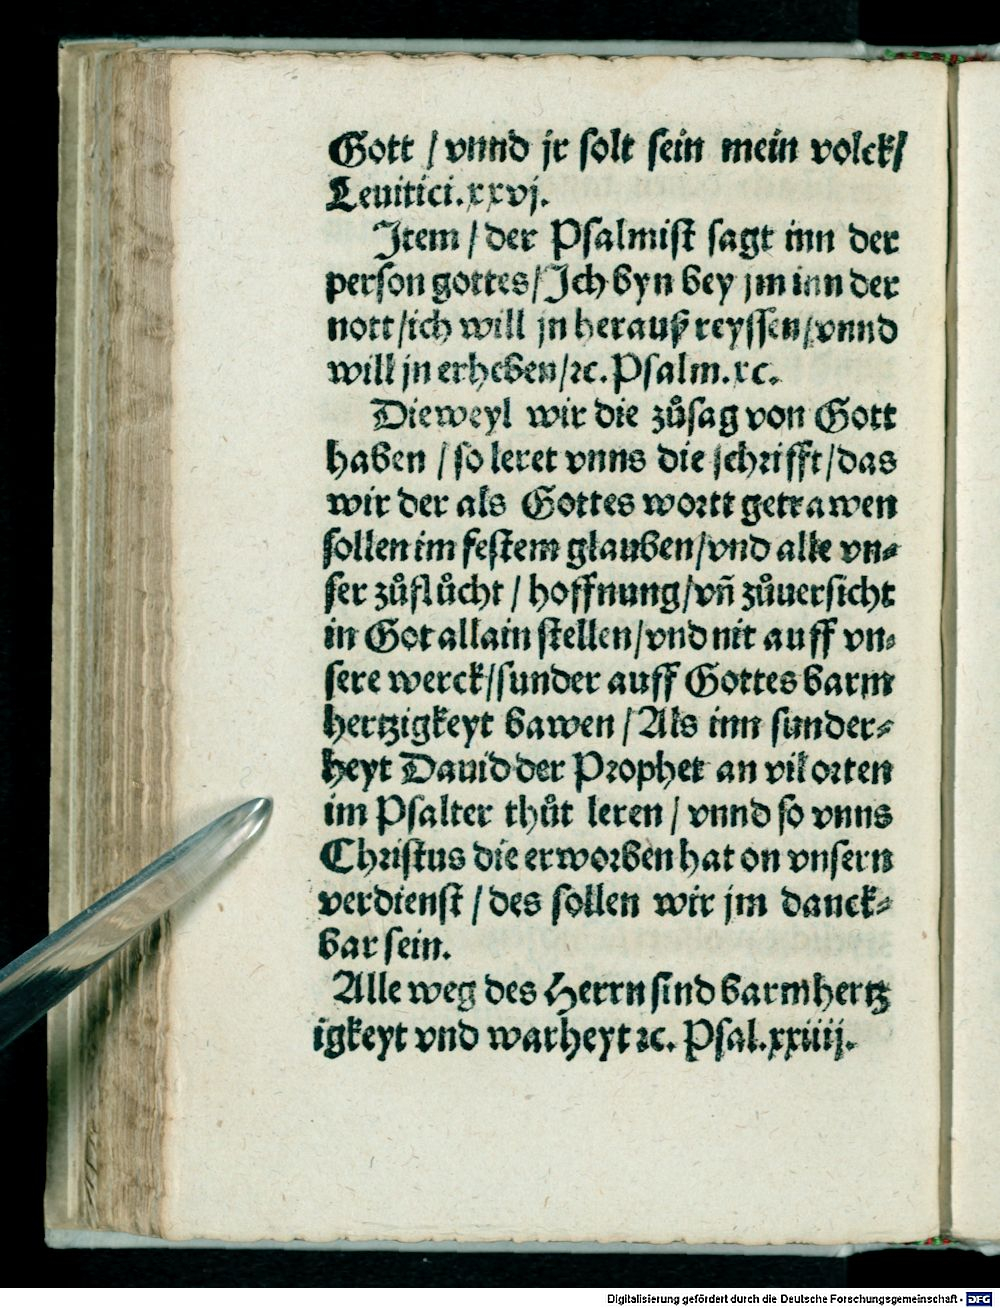 Gott / vnnd jr solt sein mein volck /
Leuitici.xxvj.
Item / der Psalmist sagt inn der
person gottes / Ich byn bey jm inn der
nott / ich will jn herauß reyssen / vnnd
will jn erheben / ꝛc. Psalm.xc.
Dieweyl wir die zůsag von Gott
haben / so leret vnns die schrifft / das
wir der als Gottes wortt getrawen
sollen im festem glauben / vnd alle vn-
ser zůflůcht / hoffnung / vñ zůuersicht
in Got allain stellen / vnd nit auff vn-
sere werck / sunder auff Gottes barm
hertzigkeyt bawen / Als inn sunder-
heyt Dauid der Prophet an vil orten
im Psalter thůt leren / vnnd so vnns
Christus die erworben hat on vnsern
verdienst / des sollen wir jm danck-
bar sein.
Alle weg des Herrn sind barmhertz
igkeyt vnd warheyt ꝛc. Psal.xxiiij.
Digitalisierung gefördert durch die Deutsche Forschungsgemeinschaft - DFG